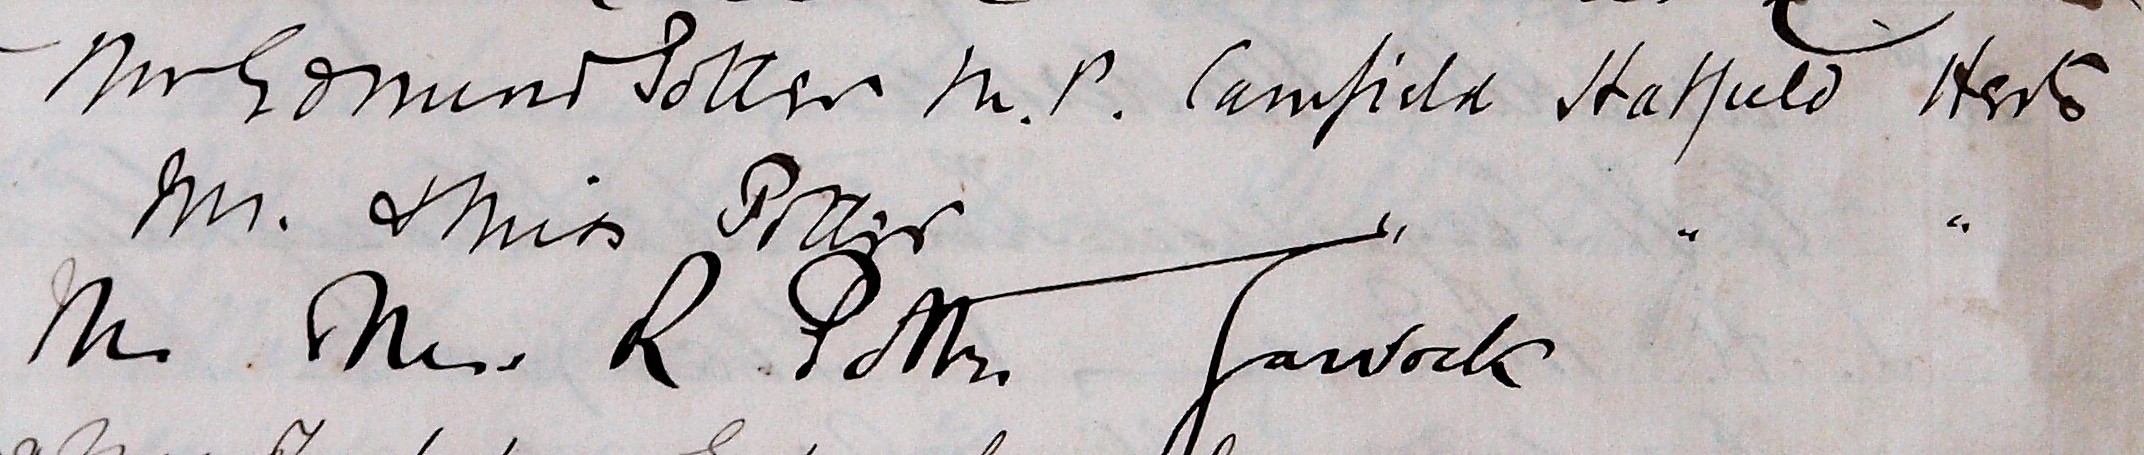 Mr Edmund Potter M.P. Camfield Hatfield Herts
Mr. & Miss Potter " " "
Mr Mrs. R Potter Garvock